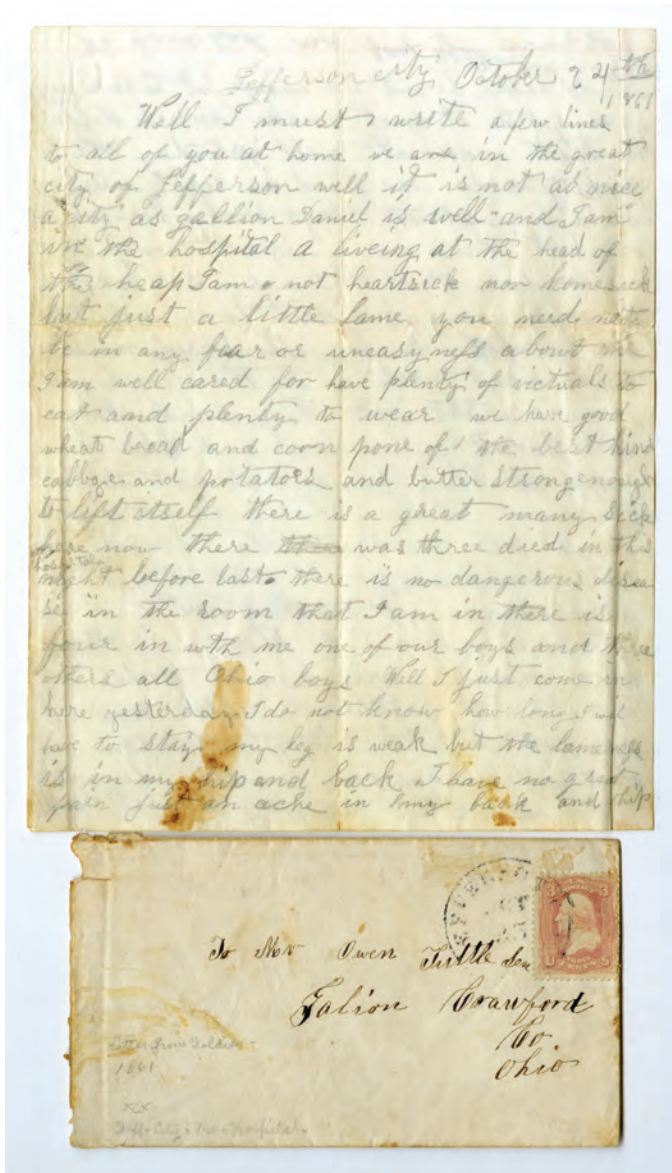 Jefferson city October 24th
1861
Well I must write a few lines
to all of you at home we are in the great
city of Jefferson well it is not as nice
a city as gallion Daniel is well and I am
in the hospital a liveing at the head of
the heap I am not heartsick nor homesick
but just a little lame you need not
be in any fear or uneasyness about me
I am well cared for have plenty of victuals to
eat and plenty to wear we have good
wheat bread and corn pone of the best kind
cabbage and potatoes and butter strong enough
to lift itself there is a great many sick
here now there was three died in this
hospital
night before last there is no dangerous disea
se in the room that I am in there is
four in with me one of our boys and three
others all Ohio boys Well I just come in
here yesterday I do not know how long I will
have to stay my leg is weak but the lameness
is in my hip and back I have no great
pain just an ache in my back and hip
3 3
U S
To Mr Owen Tuttle Sen
Galion Crawford
Co
Ohio
Letter from Soldier -
1861
xxx
Jeff. City. Mo. Hospital.